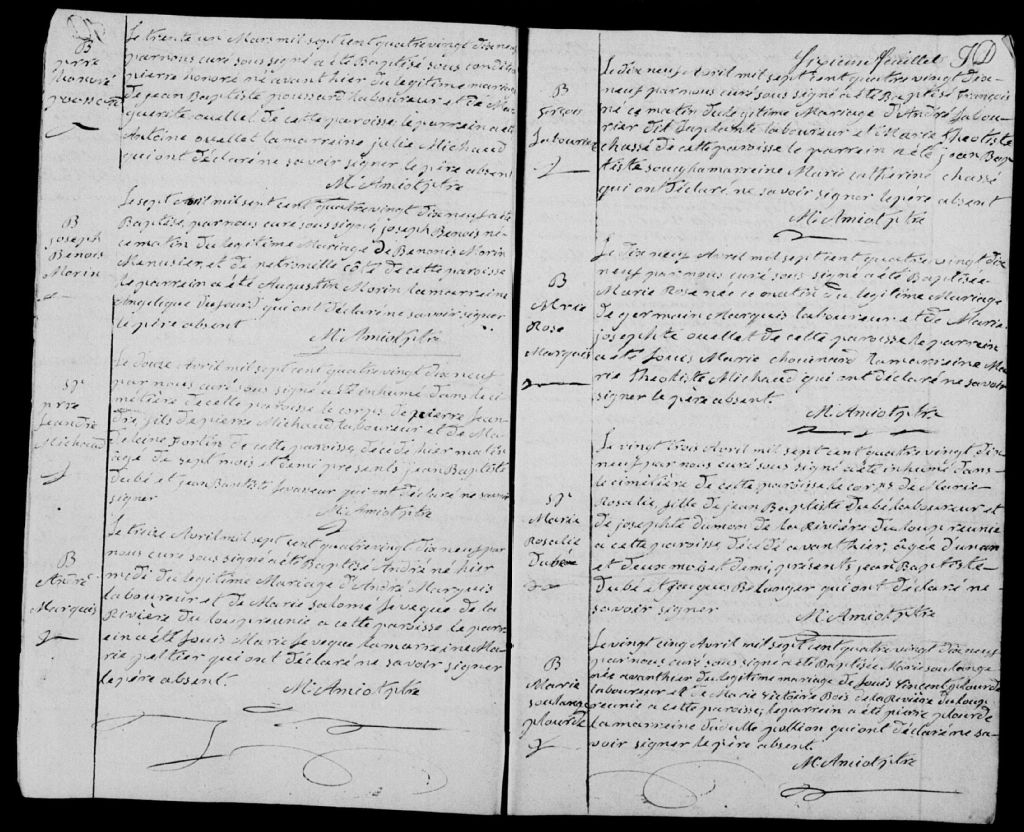 B
pierre
honoré
poussard
Le trente un Mars mil sept cent quatre vingt dix neuf
par nous curé sous signé a été Baptisé sous condition
pierre honoré né avant hier du legitime mariage
de jean Baptiste poussard laboureur et de Mar
guerite ouellet de cette paroisse le parrein a été
Antoine ouellet la marreine julie Michaud
qui ont déclaré ne savoir signer le père absent
M. Amiot ptre
B
joseph
Benois
Morin
Le sept avril mil sept cent quatre vingt dix neuf a été
Baptisé par nous curé sous signé joseph Benois né
ce matin du legitime Mariage de Benonis Morin
Menusier, et de petronille côté de cette paroisse
le parrein a été Augustin Morin la marreine
Angelique qui ont déclaré ne savoir signer
le père absent
M. Amiot ptre
Sp.
prre
Leandre
Michaud
Le douze Avril mil sept cent quatre vingt dix neuf
par nous curé sous signé a été inhumé dans le ci
metière de cette paroisse le corps de pierre Lean
dre, fils de pierre Michaud laboureur et de Ma
deleine fortin de cette paroisse, décédé hier matin
agé de sept mois et demi presents jean Baptiste
Dubé et jean Baptiste Levasseur qui ont déclaré ne savoir
signer
M. Amiot ptre
B
André
Marquis
Le treize Avril mil sept cent quatre vingt dix neuf par
nous curé sous signé a été Baptisé André né hier
midi du legitime Mariage d'André Marquis
laboureur et de Marie salomé Leveque de la
Rivière du loup reunie a cette paroisse le parr
ein a été Louis Marie Leveque la marreine Ma
rie peltier qui ont déclaré ne savoir signer
le père absent.
M. Amiot ptre
Sixième feuillet JD
B
françois
Letourner
Le dix neuf Avril mil sept cent quatre vingt dix
neuf par nous curé sous signé a été Baptisé françois
né ce matin du legitime Mariage d'André Letou
rier dit laboureur et Marie Theotiste
chassé de cette paroisse le parrein a été jean Bap
tiste soucy la marreine Marie catherine chassé
qui ont déclaré ne savoir signer le père absent
M. Amiot ptre
B
Marie
Rose
Marquis
Le dix neuf Avril mil sept cent quatre vingt dix
neuf par nous curé sous signé a été Baptisée
Marie Rose née ce matin du legitime Mariage
de germain Marquis laboureur et de Marie
josephte ouellet de cette paroisse le parrein
a été Louis Marie chouinard la marreine Ma
rie theotiste Michaud qui ont déclaré ne savoir
signer le père absent
M. Amiot ptre
Sp.
Marie
Rosalie
Dubé
Le vingt trois Avril mil sept cent quatre vingt dix
neuf par nous curé sous signé a été inhumé dans
le cimetière de cette paroisse le corps de Marie
Rosalie, fille de jean Baptiste dubé laboureur et
de josephte dumon de la Rivière du loup reunie
a cette paroisse, décédé avant hier, âgée d'un an
et deux mois et demi, presents jean Baptiste
dubé et jacques Belanger qui ont déclaré ne
savoir signer
M. Amiot ptre
B
Marie
soulange
plourde
Le vingt cinq Avril mil sept cent quatre vingt dix neuf
par nous curé sous signé a été Baptisée Marie soulange
née avant hier du legitime mariage de Louis Vincent plourde
laboureur et de Marie Victoire Bois de la Rivière du loup
reunie a cette paroisse; le parrein a été pierre plourde
la marreine qui ont déclaré ne sa
voir signer le père absent
M. Amiot ptre